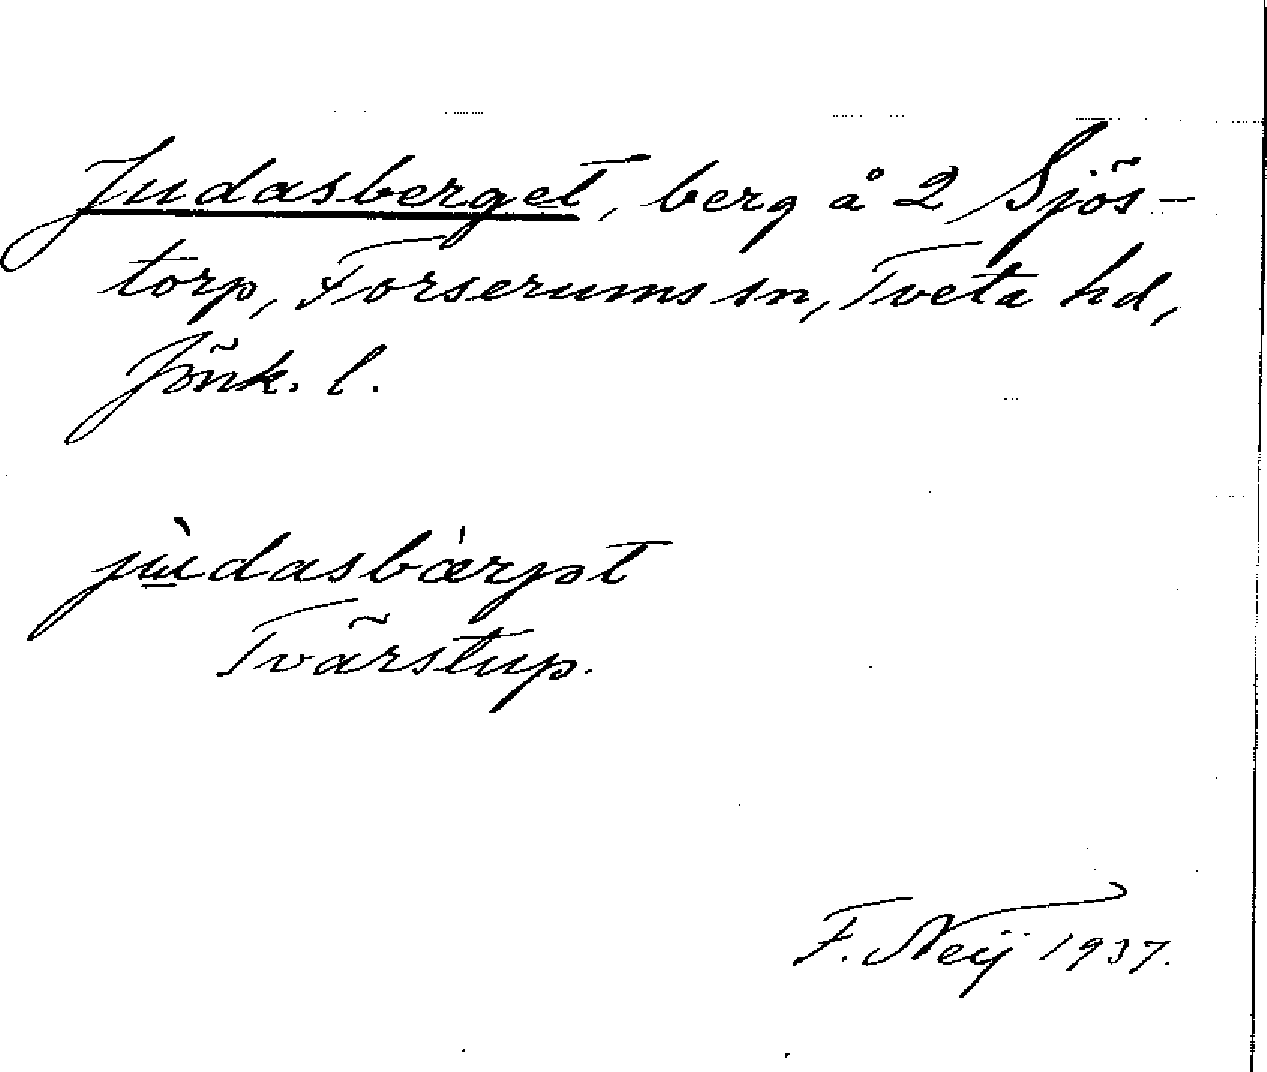 Judasberget, berg å 2 Sjös-
torp, Forserums sn, Tveta hd,
Jönk. l.
jùdasbærjət
Tvärstup.
F. Neij 1937.